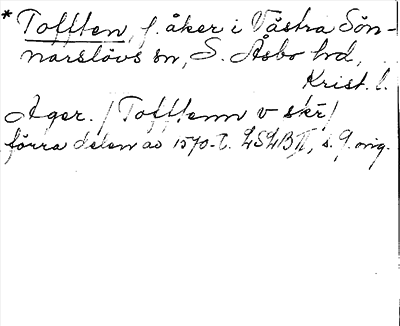 * Tofften, f. åker i Västra Sön-
narslövs sn, S. Åsbo hd,
Krist. l.
Ager. / Tofftenn v skr /
förra delen av 1570-t. LSLB II, s. 9. orig.